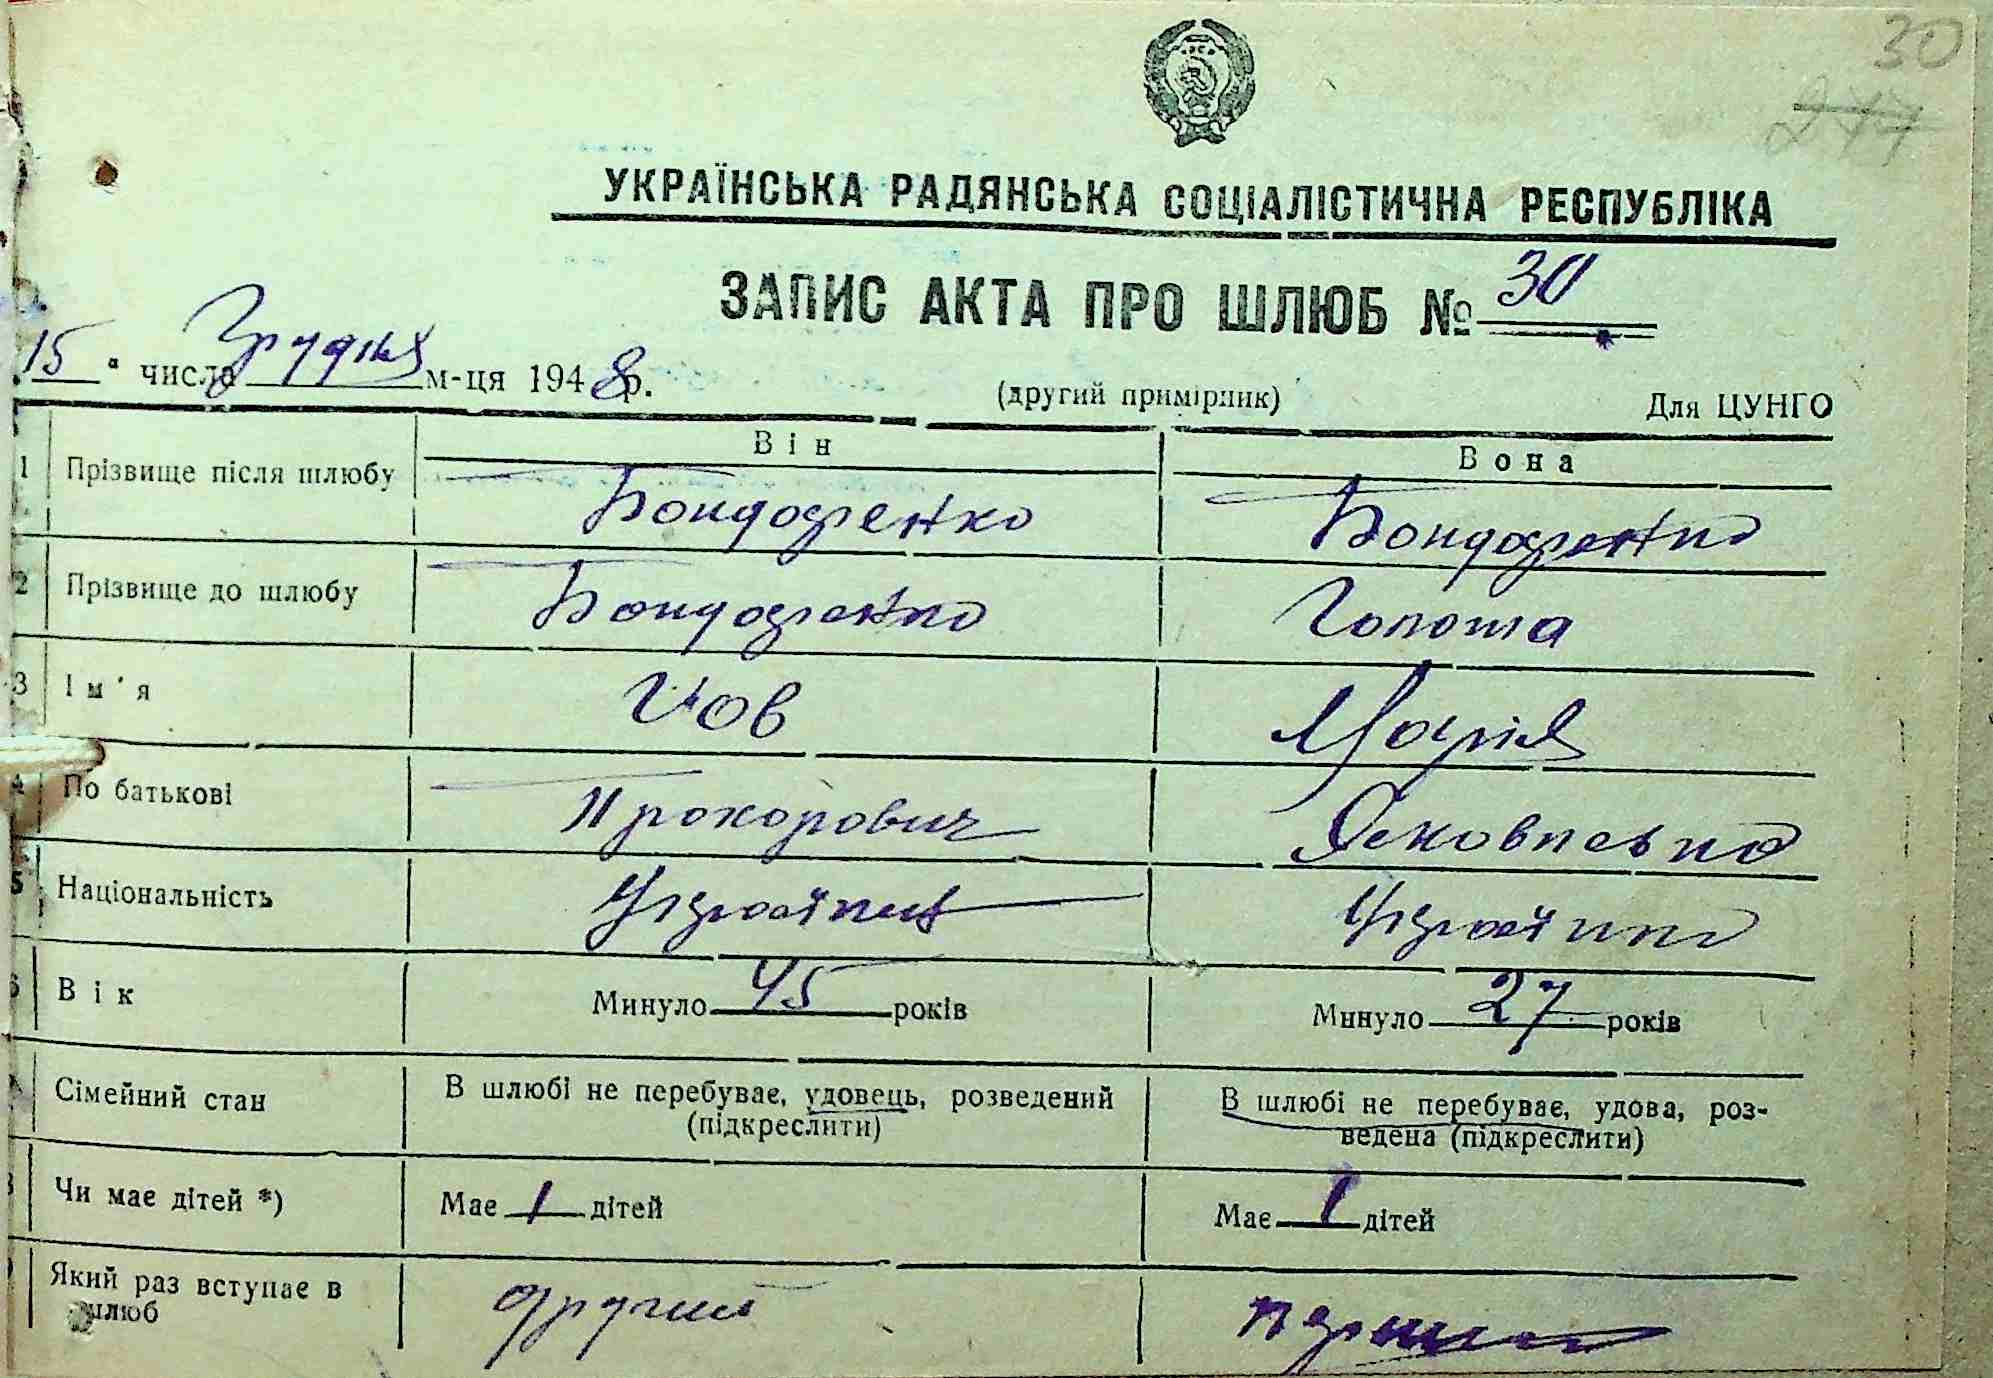 30
277
УКРАЇНСЬКА РАДЯНСЬКА СОЦІАЛІСТИЧНА РЕСПУБЛІКА
ЗАПИС АКТА ПРО ШЛЮБ № 30
15 " числа Грудня м-ця 1948 р. (другий примірник) Для ЦУНГО
Він Вона
1 Прізвище після шлюбу Бондаренко Бондаренко
2 Прізвище до шлюбу Бондаренко Голота
3 Ім'я Иов Марія
4 По батькові Прокорович Яковлевна
5 Національність Українец Українка
6 Вік Минуло 45 років Минуло 27 років
Сімейний стан В шлюбі не перебуває, удовець, розведений (підкреслити) В шлюбі не перебуває, удова, роз-
ведена (підкреслити)
Чи має дітей *) Має 1 дітей Має 1 дітей
Який раз вступає в шлюб другий перший